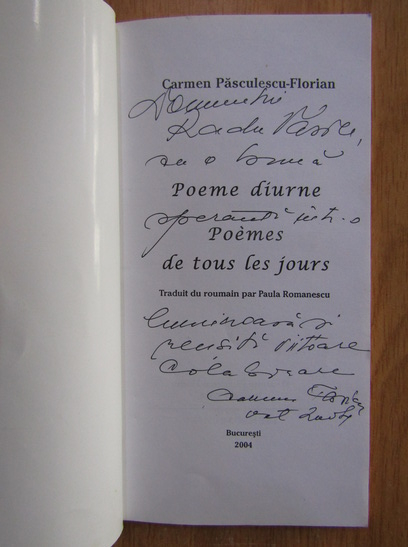 Carmen Păsculescu-Florian
Domnului
Radu Vasile,
cu o bună
Poeme diurne
speranță într-o
Poèmes
de tous les jours
Traduit du roumain par Paula Romanescu
luminoasă și
reușită viitoare
colaborare
Carmen Florian
oct 2004
București
2004